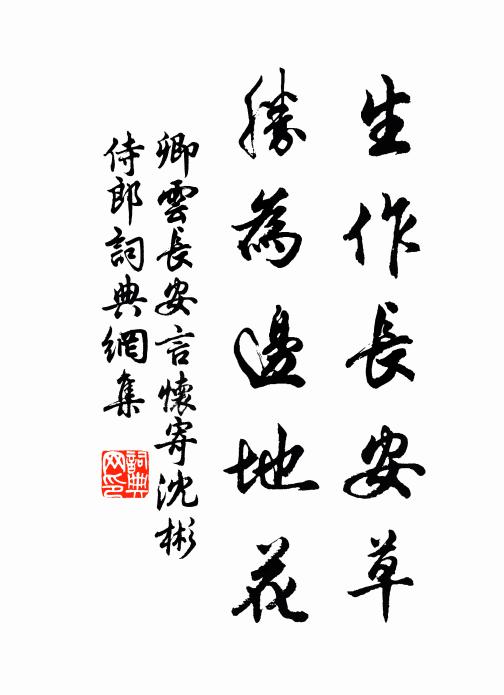 生作長安草
勝為邊地花
卿雲長安言懷寄沈彬
侍郎詞典網集
詞典
网印